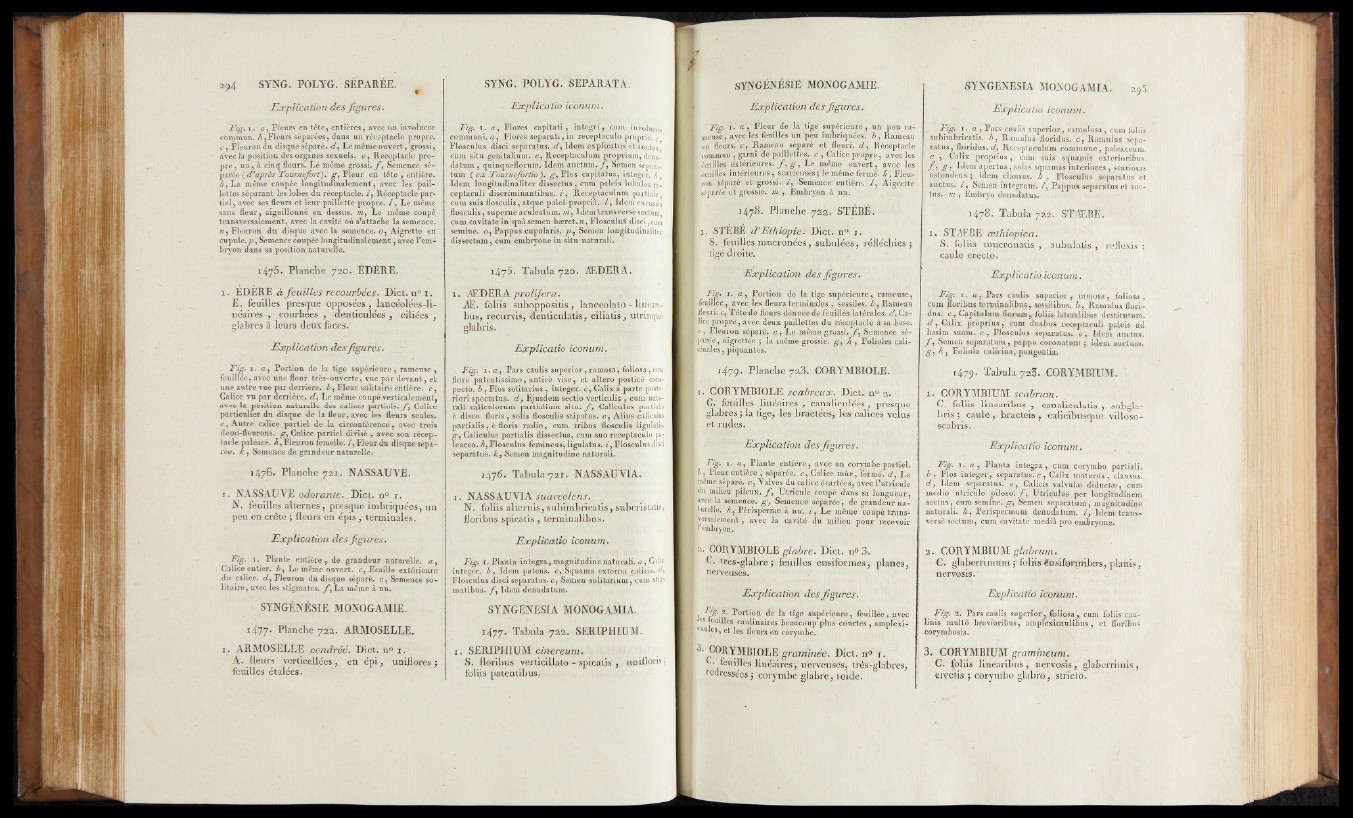 294 SYNG. POLYG. SÉPARÉE.
Explication des figures.
Fig. 1. a, Fleurs en tête, entières, avec un involucre
commun. b, Fleurs séparées, dans un réceptacle propre.
c, Fleuron du disque séparé. d, Le même ouvert, grossi,
avec la position des organes sexuels. e, Réceptacle pro-
pre, nu, à cinq fleurs. Le même grossi. f, Semence sé-
parée (d'après Tournefort). g, Fleur en tête, entière.
h, La même coupée longitudinalement, avec les pail-
lettes séparant les lobes du réceptacle. i, Réceptacle par-
tiel, avec ses fleurs et leur paillette propre. l, Le même
sans fleur, aiguillonné en dessus. m, Le même coupé
transversalement, avec la cavité où s'attache la semence.
n, Fleuron du disque avec la semence. o, Aigrette en
cupule. p, Semence coupée longitudinalement, avec l'em-
bryon dans sa position naturelle.
1475. Planche 720. ÉDÈRE.
1. ÉDÈRE à feuilles recourbées. Dict. n° 1.
E. feuilles presque opposées, lancéolées-li-
néaires, courbées, denticulées, ciliées,
glabres à leurs deux faces.
Explication des figures.
Fig. 1. a, Portion de la tige supérieure, rameuse,
feuillée, avec une fleur très-ouverte, vue par devant, et
une autre vue par derrière. b, Fleur solitaire entière. c,
Calice vu par derrière. d, Le même coupé verticalement,
avec la position naturelle des calices partiels. f, Calice
particulier du disque de la fleur, avec les fleurs seules.
e, Autre calice partiel de la circonférence, avec trois
demi-fleurons. g, Calice partiel divisé, avec son récep-
tacle paléacé. h, Fleuron femelle. i, Fleur du disque sépa-
rée. k, Semence de grandeur naturelle.
1476. Planche 721. NASSAUVE.
1. NASSAUVE odorante. Dict. n° 1.
N. feuilles alternes, presque imbriquées, un
peu en crête; fleurs en épis, terminales.
Explication des figures.
Fig. 1. Plante entière, de grandeur naturelle. a,
Calice entier. b, Le même ouvert. c, Ecaille extérieure
du calice. d, Fleuron du disque séparé. e, Semence so-
litaire, avec les stigmates. f, La même à nu.
SYNGÉNÉSIE MONOGAMIE.
1477. Planche 722. ARMOSELLE.
1. ARMOSELLE cendrée. Dict. n° 1.
A. fleurs verticellées, en épi, uniflores;
feuilles étalées.
SYNG. POLYG. SEPARATA.
Explicatio iconum.
Fig. 1. a, Flores capitati, integri, cum involucro
communi. a, Flores separati, in receptaculo proprio. c,
Flosculus disci separatus. d, Idem explicatus et auctus,
cum situ genitalium. e, Receptaculum proprium, denu-
datum, quinqueflorum. Idem auctum. f, Semen separa-
tum (ex Tournefortio). g, Flos capitatus, integer. h,
Idem longitudinaliter dissectus, cum paleis lobulos re-
ceptaculi discriminantibus. i, Receptaculum partiale,
cum suis flosculis, atque paleâ propriâ. l, Idem
flosculis, supernè aculeatum. m, Idem transversè sectum,
cum cavitate in quâ semen hæret. n, Flosculus disci, cum
semine. o, Pappus cupularis. p, Semen longitudinaliter
dissectum, cum embryone in situ naturali.
1475. Tabula 720. ÆDERA.
1. ÆDERA prolifera.
Æ. foliis suboppositis, lanceolato-linear
bus, recurvis, denticulatis, ciliatis, utrinque
glabris.
Explicatio iconum.
Fig. 1. a, Pars caulis superior, ramosa, foliosa, cum
flore patentissimo, anticè viso, et altero posticè cons-
pecto. b, Flos solitarius, integer. c, Calix à parte poste-
riori spectatus. d, Ejusdem sectio verticalis, cum natu-
rali caliculorum partialium situ. f, Caliculus partialis
è disco floris, solis flosculis stipatus. e, Alius caliculus
partialis, è floris radio, cum tribus flosculis ligulatis.
g, Caliculus partialis dissectus, cum suo receptaculo pa-
leaceo. h, Flosculus femineus, ligulatus. i, Flosculus disci
separatus. k, Semen magnitudine naturali.
1476. Tabula 721. NASSAUVIA.
1. NASSAUVIA suaveolens.
N. foliis alternis, subimbricatis, subcristatis,
floribus spicatis, terminalibus.
Explicatio iconum.
Fig. 1. Planta integra, magnitudine naturali. a, Calix
integer. b, Idem patens. c, Squama externa calicis. d,
Flosculus disci separatus. e, Semen solitarium, cum stig-
matibus. f, Idem denudatum.
SYNGENESIA MONOGAMIA.
1477. Tabula 722. SERIPHIUM.
1. SERIPHIUM cinereum.
S. floribus verticillato-spicatis, unifloris;
foliis patentibus.
SYNGÉNÉSIE MONOGAMIE.
Explication des figures.
Fig. 1. a, Fleur de la tige supérieure, un peu ra-
meuse, avec les feuilles un peu imbriquées. b, Rameau
en fleurs. c, Rameau séparé et fleuri. d, Réceptacle
commun, garni de paillettes. e, Calice propre, avec les
écailles extérieures. f, g, Le même ouvert, avec les
écailles intérieures, scarieuses; le même fermé. h, Fleu-
ron séparé et grossi. i, Semence entière. l, Aigrette
séparée et grossie. m, Embryon à nu.
1478. Planche 722. STÉBÉ.
1. STÉBÉ d'Ethiopie. Dict. n° 1.
S. feuilles mucronées, subulées, réfléchies;
tige droite.
Explication des figures.
Fig. 1. a, Portion de la tige supérieure, rameuse,
feuillée, avec les fleurs terminales, sessiles. b, Rameau
fleuri. c, Tête de fleurs dénuée de feuilles latérales. d, Ca-
lice propre, avec deux paillettes du réceptacle à sa base.
e, Fleuron séparé. e, Le même grossi. f, Semence sé-
parée, aigrettée; la même grossie. g, h, Folioles cali-
cinales, piquantes.
1479. Planche 723. CORYMBIOLE.
1. CORYMBIOLE scabreux. Dict. n° 2.
C. feuilles linéaires, canaliculées, presque
glabres; la tige, les bractées, les calices velus
et rudes.
Explication des figures.
Fig. 1. a, Plante entière, avec un corymbe partiel.
b, Fleur entière, séparée. c, Calice mûr, fermé. d, Le
même séparé. e, Valves du calice écartées, avec l'utricule
du milieu pileux. f, Utricule coupé dans sa longueur,
avec la semence. g, Semence séparée, de grandeur na-
turelle. h, Périsperme à nu. i, Le même coupé trans-
versalement, avec la cavité du milieu pour recevoir
l'embryon.
2. CORYMBIOLE glabre. Dict. n° 3.
C. très-glabre; feuilles ensiformes, planes,
nerveuses.
Explication des figures.
Fig. 2. Portion de la tige supérieure, feuillée, avec
les feuilles caulinaires beaucoup plus courtes, amplexi-
caules, et les fleurs en corymbe.
3. CORYMBIOLE graminée. Dict. n° 1.
C. feuilles linéaires, nerveuses, très-glabres,
redressées; corymbe glabre, roide.
SYNGENESIA MONOGAMIA. 295
Explicatio iconum.
Fig. 1. a, Pars caulis superior, ramulosa, cum foliis
subimbricatis. b, Ramulus floridus. c, Ramulus sepa-
ratus, floridus. d, Receptaculum commune, paleaceum.
e, Calix proprius, cum suis squamis exterioribus.
f, g, Idem apertus, solas squamas interiores, scariosas
ostendens; idem clausus. h, Flosculus separatus et
auctus. i, Semen integrum. l, Pappus separatus et auc-
tus. m, Embryo denudatus.
1478. Tabula 722. STÆBE.
1. STÆBE æthiopica.
S. foliis mucronatis, subulatis, reflexis;
caule erecto.
Explicatio iconum.
Fig. 1. a, Pars caulis superior, ramosa, foliosa,
cum floribus terminalibus, sessilibus. b, Ramulus flori-
dus. c, Capitulum florum, foliis lateralibus destitutum.
d, Calix proprius, cum duabus receptaculi paleis ad
basim suam. e, Flosculus separatus. e, Idem auctus.
f, Semen separatum, pappo coronatum; idem auctum.
g, h, Foliola calicina, pungentia.
1479. Tabula 723. CORYMBIUM.
1. CORYMBIUM scabrum.
C. foliis linearibus, canaliculatis, subgla-
bris; caule, bracteis, calicibusque villoso-
scabris.
Explicatio iconum.
Fig. 1. a, Planta integra, cum corymbo partiali.
b, Flos integer, separatus. c, Calix maturus, clausus.
d, Idem separatus. e, Calicis valvulæ diductæ, cum
medio utriculo piloso. f, Utriculus per longitudinem
sectus, cum semine. g, Semen separatum, magnitudine
naturali. h, Perispermum denudatum. i, Idem trans-
versè sectum, cum cavitate mediâ pro embryone.
2. CORYMBIUM glabrum.
C. glaberrimum; foliis ensiformibus, planis,
nervosis.
Explicatio iconum.
Fig. 2. Pars caulis superior, foliosa, cum foliis cau-
linis multò brevioribus, amplexicaulibus, et floribus
corymbosis.
3. CORYMBIUM gramineum.
C. foliis linearibus, nervosis, glaberrimis,
erectis; corymbo glabro, stricto.